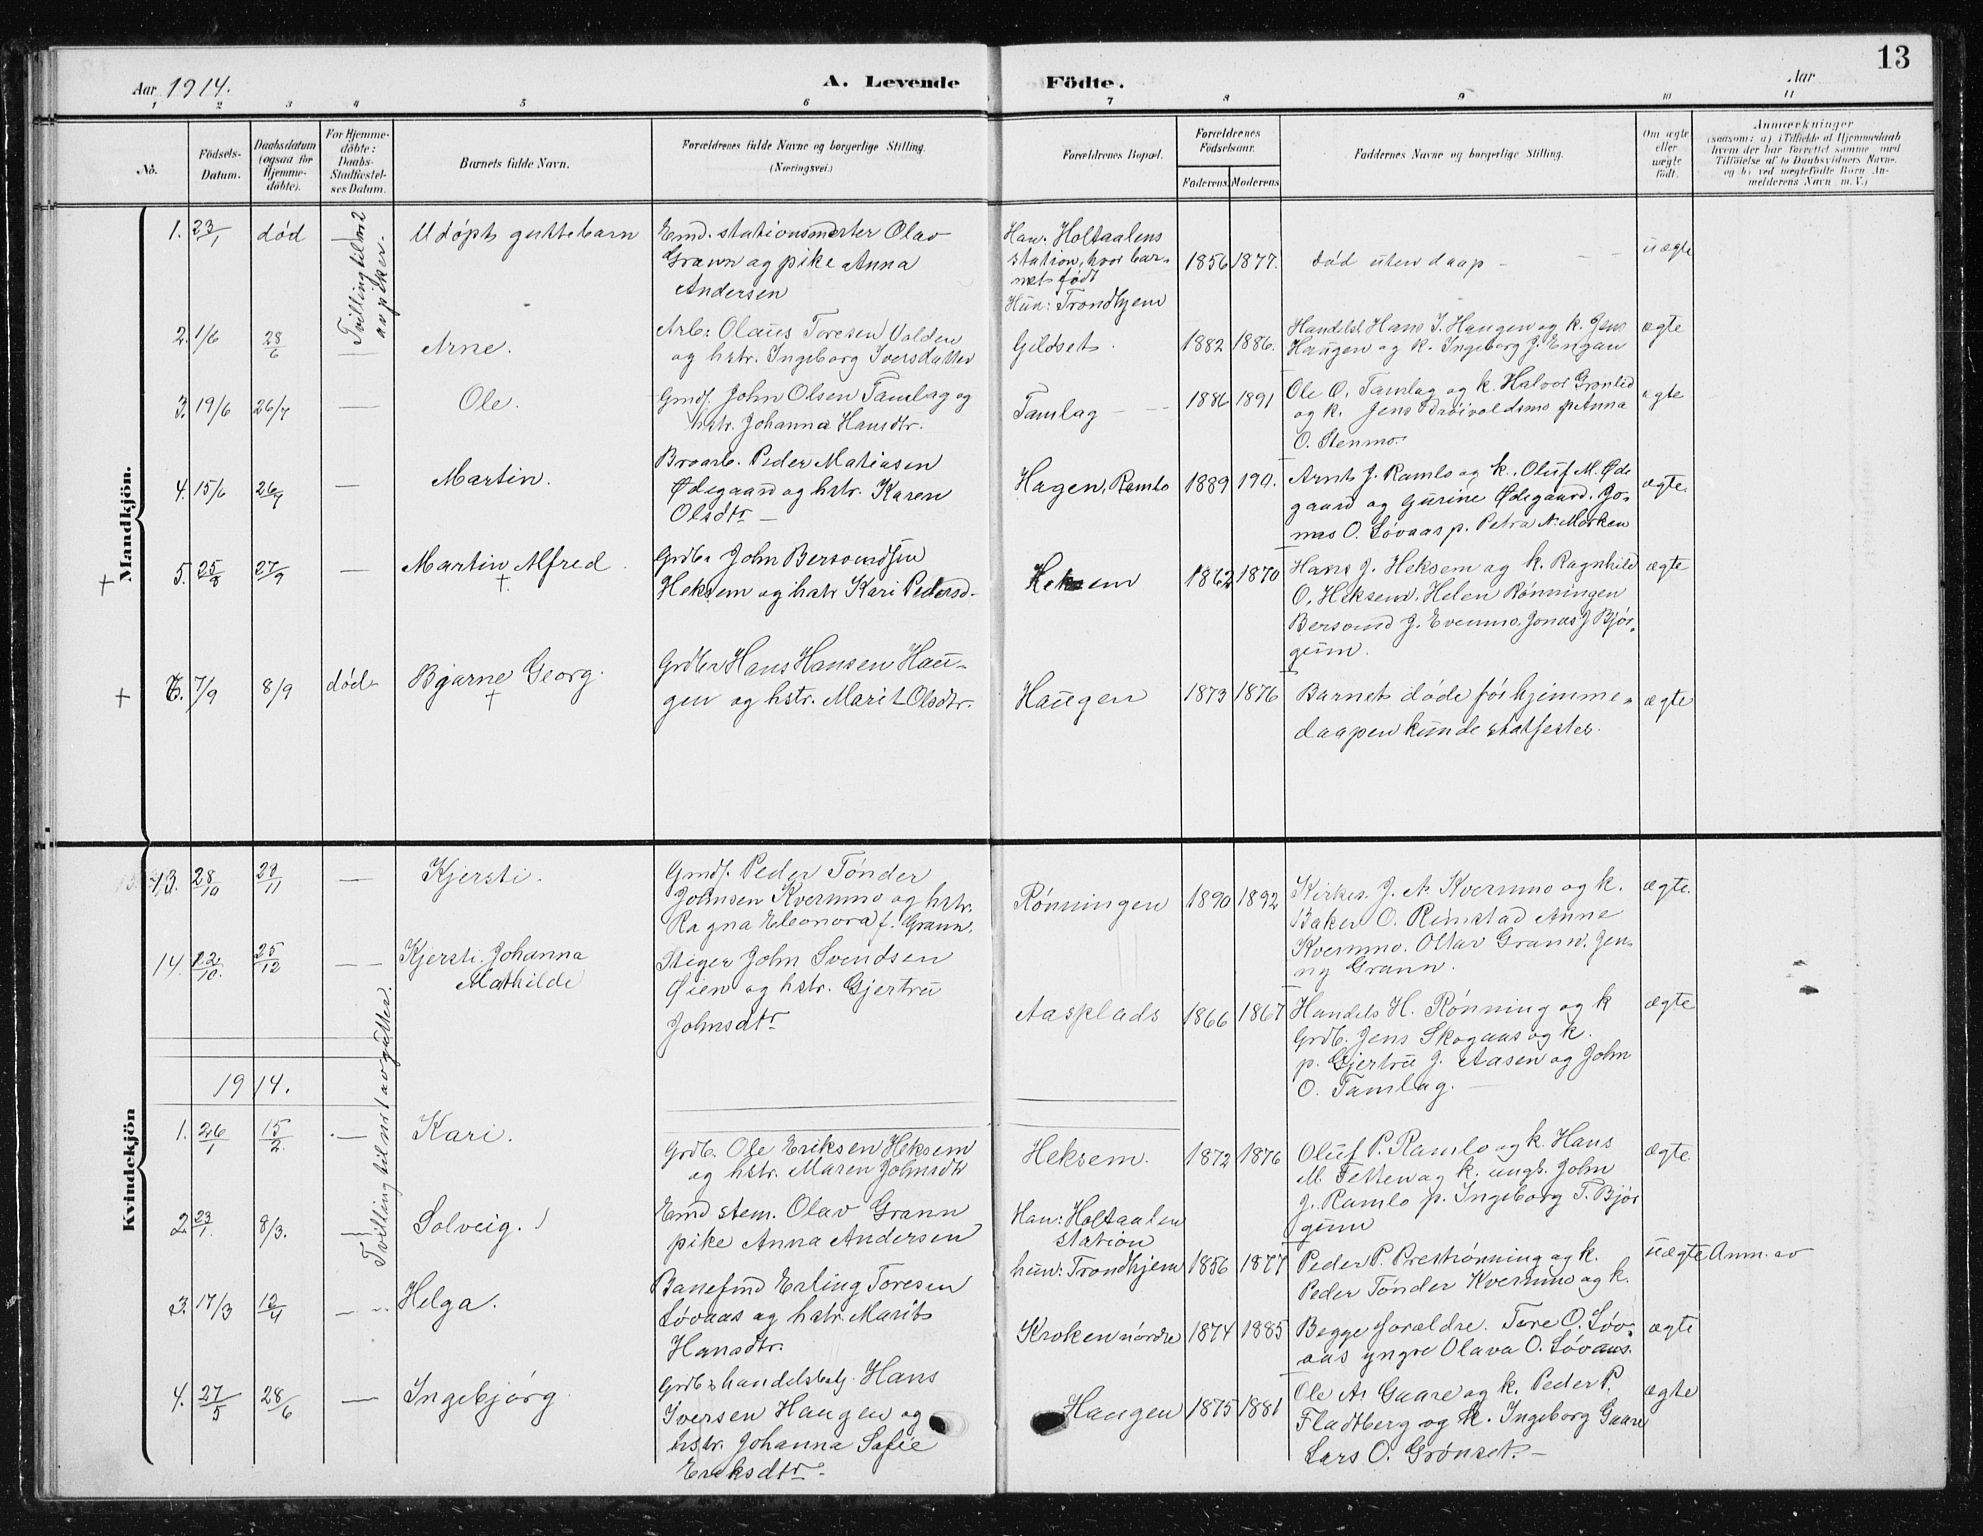 13
Aar 1914.
A. Levende Födte.
Aar
1 2 3 4 5 6 7 8 9 10 11
No.
Födsels-
Datum.
Daabsdatum
(ogsaa for
Hjemme-
döbte).
For Hjemme-
döbte:
Daabs-
Stadfæstel-
ses Datum.
Barnets fulde Navn.
Forældrenes fulde Navne og borgerlige Stilling.
(Næringsvei.)
Forældrenes Bopæl.
Forældrenes
Födselsaar.
Faderens Moderens
Faddernes Navne og borgerlige Stilling.
Om ægte
eller
uægte
födt.
Anmærkninger
(saasom: a) i Tilfælde af Hjemmedaab
hvem der har forrettet samme med
Tilföielse af to Daabsvidners Navne.
og b) ved uægtefödte Börn An-
melderens Navn m. V.)
Mandkjön.
1. 23/1 død
Tvilling til nr 2
av piker.
Udøpt guttebarn
Emd. stationsmester Olav
Grann og pike Anna
Andersen
Han: Holtaalens
station, hvor bar-
net født
Hun: Trondhjem
1856 1877.
død uten daap -
uægte
2. 1/6 28/6 —
Arne.
Arb: Olaus Toresen Volden
og hstr. Ingeborg Iversdatter
Gildset.
1882 1886.
Handelsl. Hans I. Haugen og k. Jens
Haugen og k. Ingeborg J. Engan
ægte
3. 19/6 26/7 —
Ole.
Gmdf. John Olsen Tamlag og
hstr. Johanna Hansdtr.
Tamlag
1886 1891
Ole O. Tamlag og k. Halvor Grønlid
og k. Jens Drøivoldsmo p Anna
O. Stenmo.
ægte
4. 15/6 26/7 —
Martin.
Broarb. Peder Matiasen
Ødegaard og hstr. Karen
Olsdtr —
Hagen, Ramlo
1889 190.
Arnt J. Ramlo og k. Oluf M. Øde
gaard og Gurine Ødegaard. Jo-
nas O. Løvaas p. Petra N. Morken
ægte.
† 5. 25/8 27/9 —
Martin Alfred
†
Grdb. John Bersvendsen
Heksem og hstr Kari Pedersd.
Heksem
1862 1870
Hans J. Heksem og k. Ragnhild
O. Heksem. Helen Rønningen
Bersvend J. Evenmo. Jonas J Bjør-
gum.
ægte
† 6. 7/9 8/9 død
Bjarne Georg.
†
Grdbr Hans Hansen Hau-
gen og hstr. Marit Olsdtr.
Haugen
1873 1876
Barnet døde før hjemme-
daapen kunde statfestes.
ægte
Kvindekjön
13. 28/10 29/11 —
Kjersti.
Gmdf. Peder Tønder
Johnsen Kvernmo og hstr.
Ragna Eleonora f. Grann.
Rønningen
1890 1892
Kirkes. J. A. Kvernmo og k.
Baker O. Rimstad Anne
Kvernmo. Oltar Grann. Jen-
ny Grann.
ægte.
14. 12/10. 25/12 —
Kjersti Johanna
Mathilde
Stiger John Svendsen
Øien og hstr. Gjertru
Johnsdtr
Aasplads
1866 1867
Handels H. Rønning og k
Grdb. Jens Skogaas og k.
p. Gjertru J. Aasen og John
O. Tamlag. —
ægte
1914.
1. 26/1 15/2. —
Kari.
Grdb. Ole Eriksen Heksem
og hstr. Maren Johnsdtr
Heksem.
1872 1876
Oluf P. Ramlo og k. Hans
M. Fetten og k. ungk. John
J. Ramlo p. Ingeborg T. Bjør
gum
ægte.
2 23/1. 8/3. —
Tvilling til nr 1 av gutter.
Solveig.
Emd stem. Olav Grann
pike Anna Andersen
Han: Holtaalen
station
hun: Trondhjem
1856 1877
Peder P. Prestrønning og k.
Peder Tønder Kvernmo og k.
uægte Anm. av
3. 17/3 12/4 —
Helga.
Banefmd Erling Toresen
Løvaas og hstr. Marit
Hansdtr.
Kroken nordre
1874 1885
Begge foraldre. Tore O. Løv-
aas yngre Olava O. Løvaas.
ægte
4. 27/5 28/6 —
Ingebjørg
Grdb & handelsbetj. Hans
Iversen Haugen og
hstr. Johanna Sofie
Eriksdtr.
Haugen
1875 1881
Ole A. Gaare og k. Peder P.
Fladtberg og k. Ingeborg Gaare
Lars O. Grønset. —
ægte